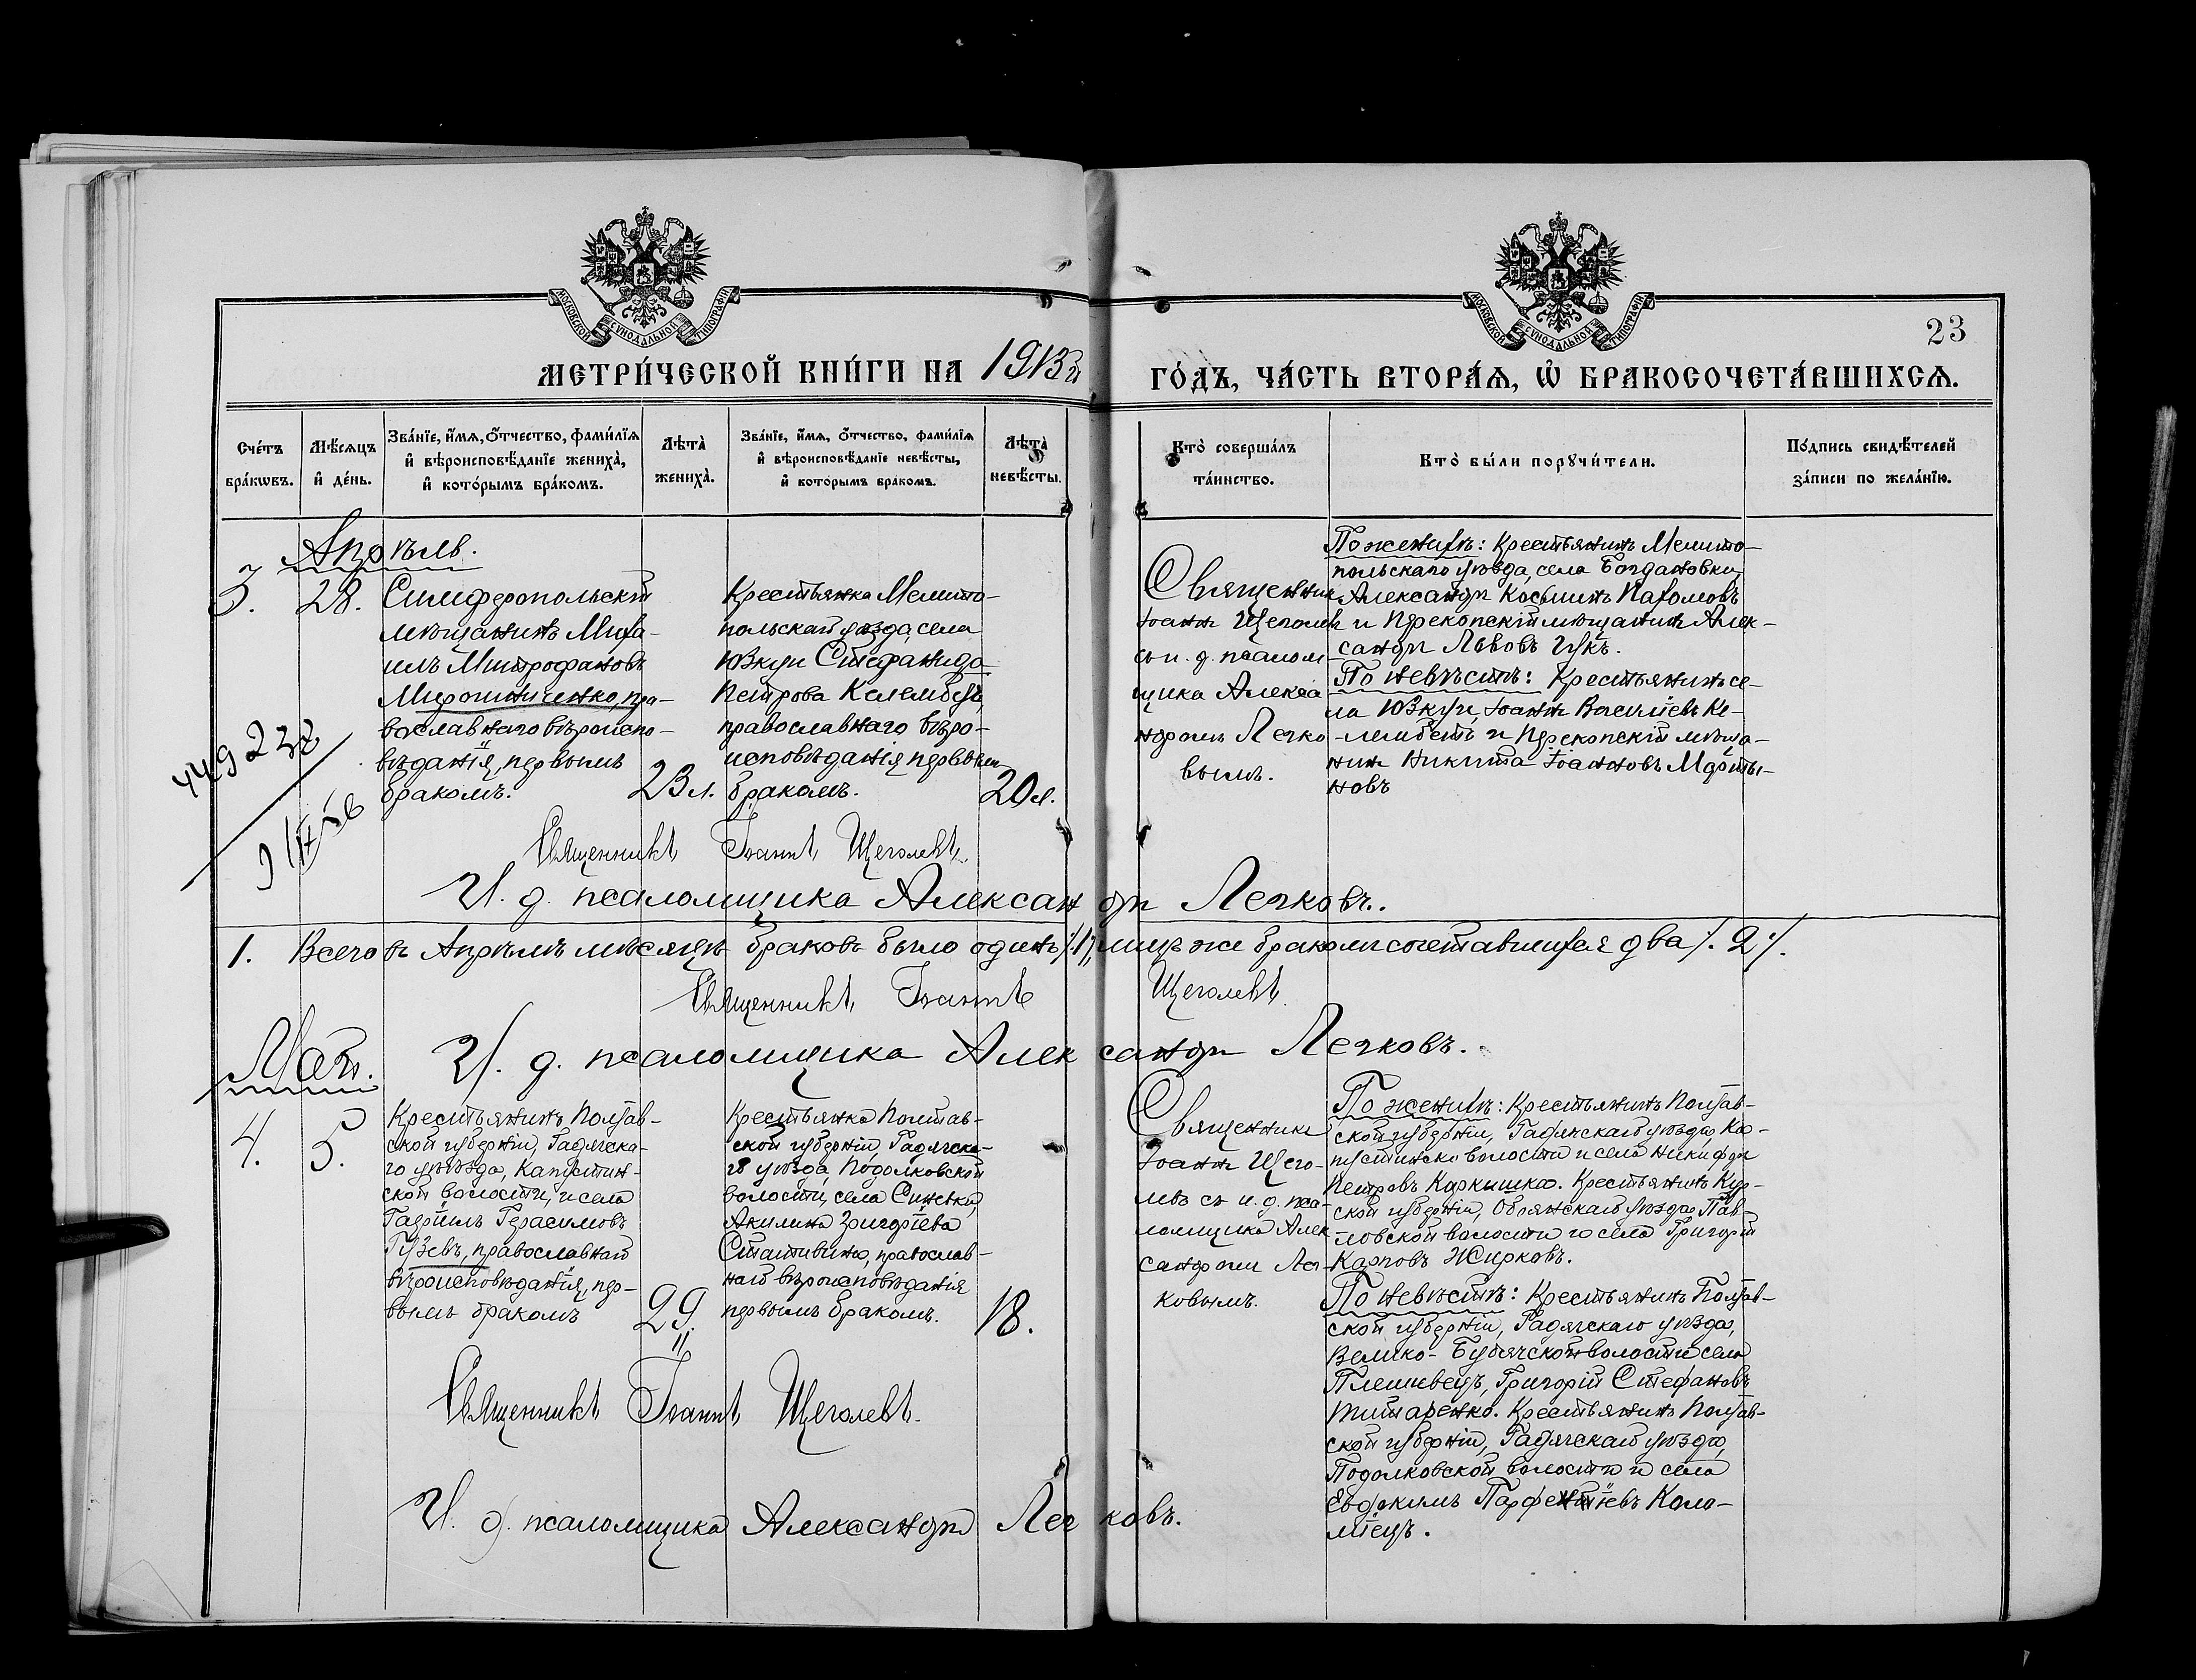 МОСКОВСКОЙ СѴНОДАЛЬНОЙ ТИПОГРАФІИ
МОСКОВСКОЙ СѴНОДАЛЬНОЙ ТИПОГРАФІИ
23
МЕТРИ́ЧЕСКОЙ КНИ́ГИ НА 1913й
ГО́ДЪ, ЧА́СТЬ ВТОРА́Ѧ, Ѡ҆ БРАКОСОЧЕТА́ВШИХСѦ.
Сче́тъ
бра́кѡвъ.
Мѣ́сѧцъ
и҆ де́нь.
Зва́нїе, и҆́мѧ, ѻ҆́тчество, фами́лїѧ
и҆ вѣроисповѣ́данїе жениха̀,
и҆ кото́рымъ бра́комъ.
Лѣта̀
жениха̀.
Зва́нїе, и҆́мѧ, ѻ҆́тчество, фами́лїѧ
и҆ вѣроисповѣ́данїе невѣ́сты,
и҆ кото́рымъ бра́комъ.
Лѣта̀
невѣ́сты.
Кто̀ соверша́лъ
та́инство.
Кто̀ бы́ли порꙋчи́тели.
По́дпись свидѣ́телей
за́писи по жела́нїю.
Апрѣль.
3.
28.
Симферопольскій
мѣщанинъ Миха-
илъ Митрофановъ
Мирошниченко, пра-
вославнаго вѣроиспо-
вѣданія, первымъ
бракомъ.
23 л.
Крестьянка Мелито-
польскаго уѣзда, села
Юзкуи Стефанида
Петрова Келембетъ,
православнаго вѣро-
исповѣданія первымъ
бракомъ.
20 л.
Священник
Іоаннъ Щеголевъ
съ и. д. псалом
щика Алекса
ндромъ Легко
вымъ.
По женихѣ: Крестьянинъ Мелито-
польскаго уѣзда, села Богдановки,
Александръ Косьминъ Пахомовъ
и Перекопскій мѣщанинъ Алек-
сандръ Львовъ Гукъ.
По невѣстѣ: Крестьянинъ се-
ла Юзкуи, Іоаннъ Васильевъ Ке-
лембетъ и Перекопскій мѣща-
нинъ Никита Іоанновъ Марты-
новъ
Священникъ Іоаннъ Щеголевъ.
И. д. псаломщика Александръ Легковъ.
1. Всего въ Апрѣлѣ мѣсяцѣ браковъ было одинъ /.1/, лицъ же бракомъ сочетавшихся два /. 2 /.
Священникъ Іоаннъ Щеголевъ.
И. д. псаломщика Александръ Легковъ.
Май.
4.
5.
Крестьянинъ Полтав-
ской губерніи, Гадячска-
го уѣзда, Капустин-
ской волости, и села
Гавріилъ Герасимовъ
Гузевъ, православнаго
вѣроисповѣданія, пер-
вымъ бракомъ
29.
Крестьянка Полтав-
ской губерніи, Гадячска-
го уѣзда, Подолковской
волости, села Синевки,
Акилина Григоріева
Стативина, православ-
наго вѣроисповѣданія
первымъ бракомъ.
18.
Священникъ
Іоаннъ Щего-
левъ съ и. д. пса-
ломщика Алек
сандромъ Лег-
ковымъ.
По женихѣ: Крестьянинъ Полтав-
ской губерніи, Гадячскаго уѣзда, Ка-
пустинско волости и села Никифоръ
Петровъ Каркишка. Крестьянинъ Кур-
ской губерніи, Обоянскаго уѣзда, Пав-
ловской волости и села Григорій
Карповъ Жирковъ.
По невѣстѣ: Крестьянинъ Полтав-
ской губерніи, Гадячскаго уѣзда,
Велико-Будячской волости села
Плешвецъ, Григорій Стефановъ
Титаренко. Крестьянинъ Полтав-
ской губерніи, Гадячскаго уѣзда,
Подолковской волости и села
Евдокимъ Парфентіевъ Коло-
міецъ.
Священникъ Іоаннъ Щеголевъ.
И. д. псаломщика Александръ Легковъ.